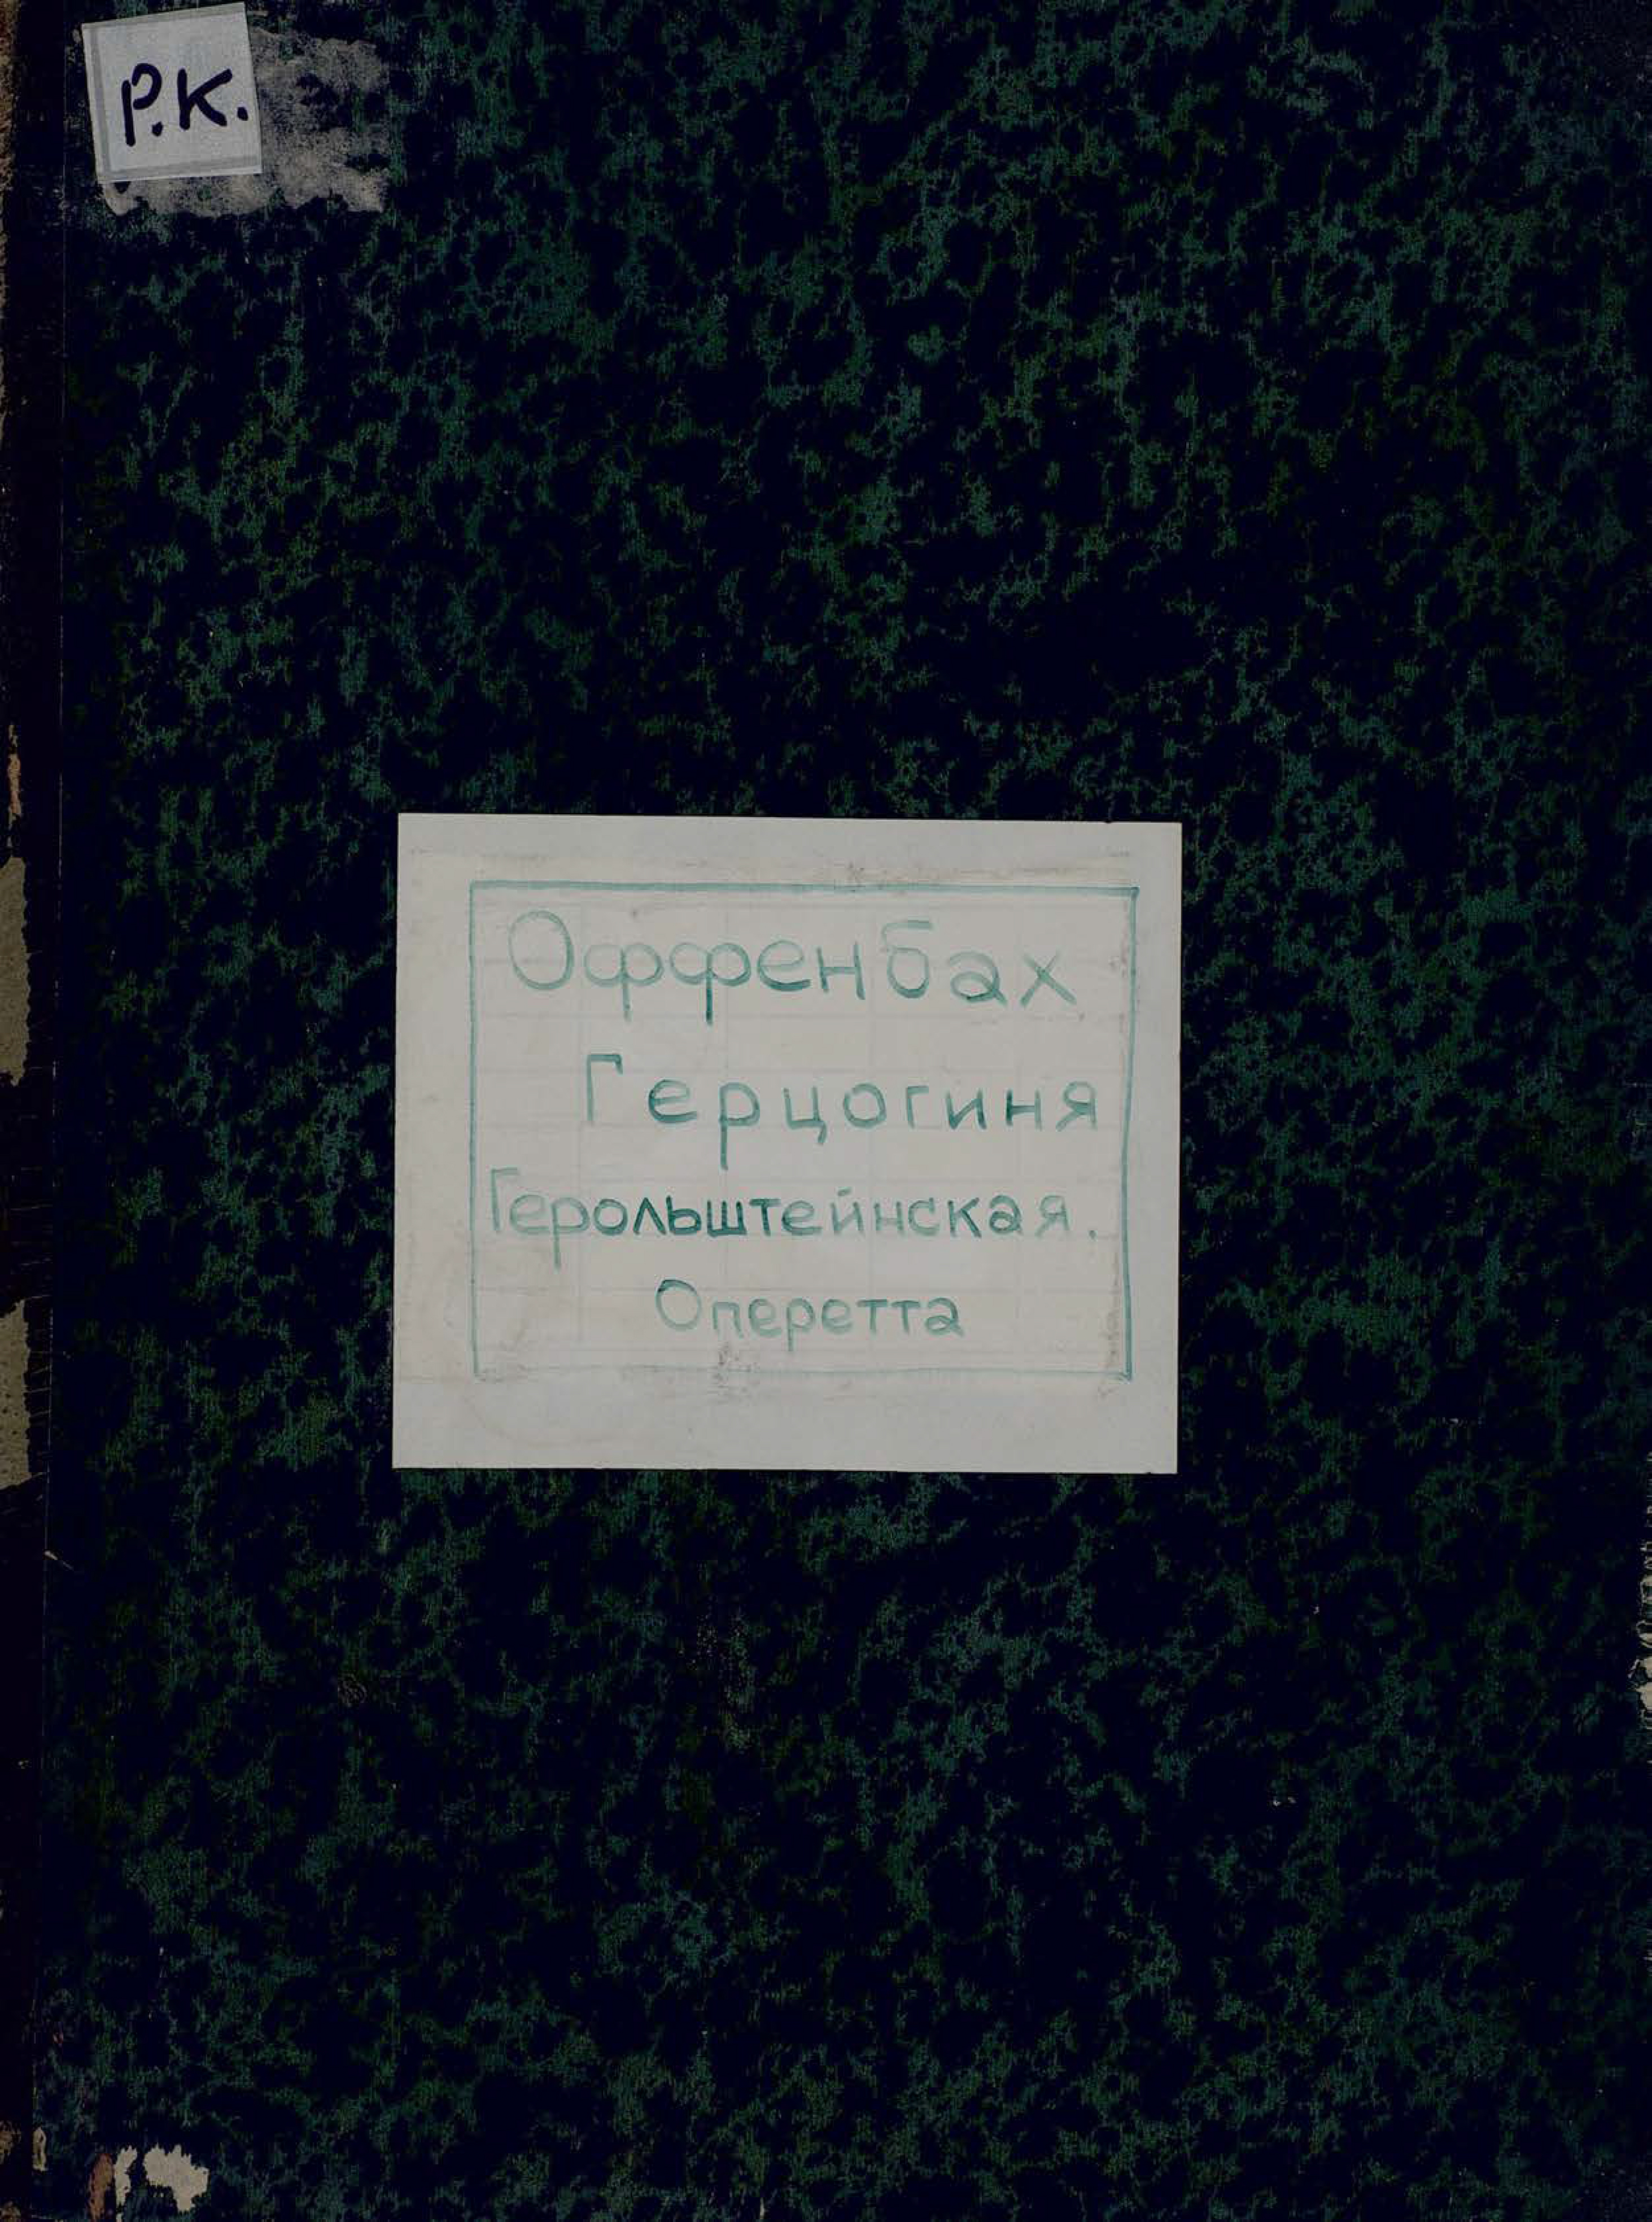 Р.К.
Оффенбах
Герцогиня
Герольштейнская.
Оперетта